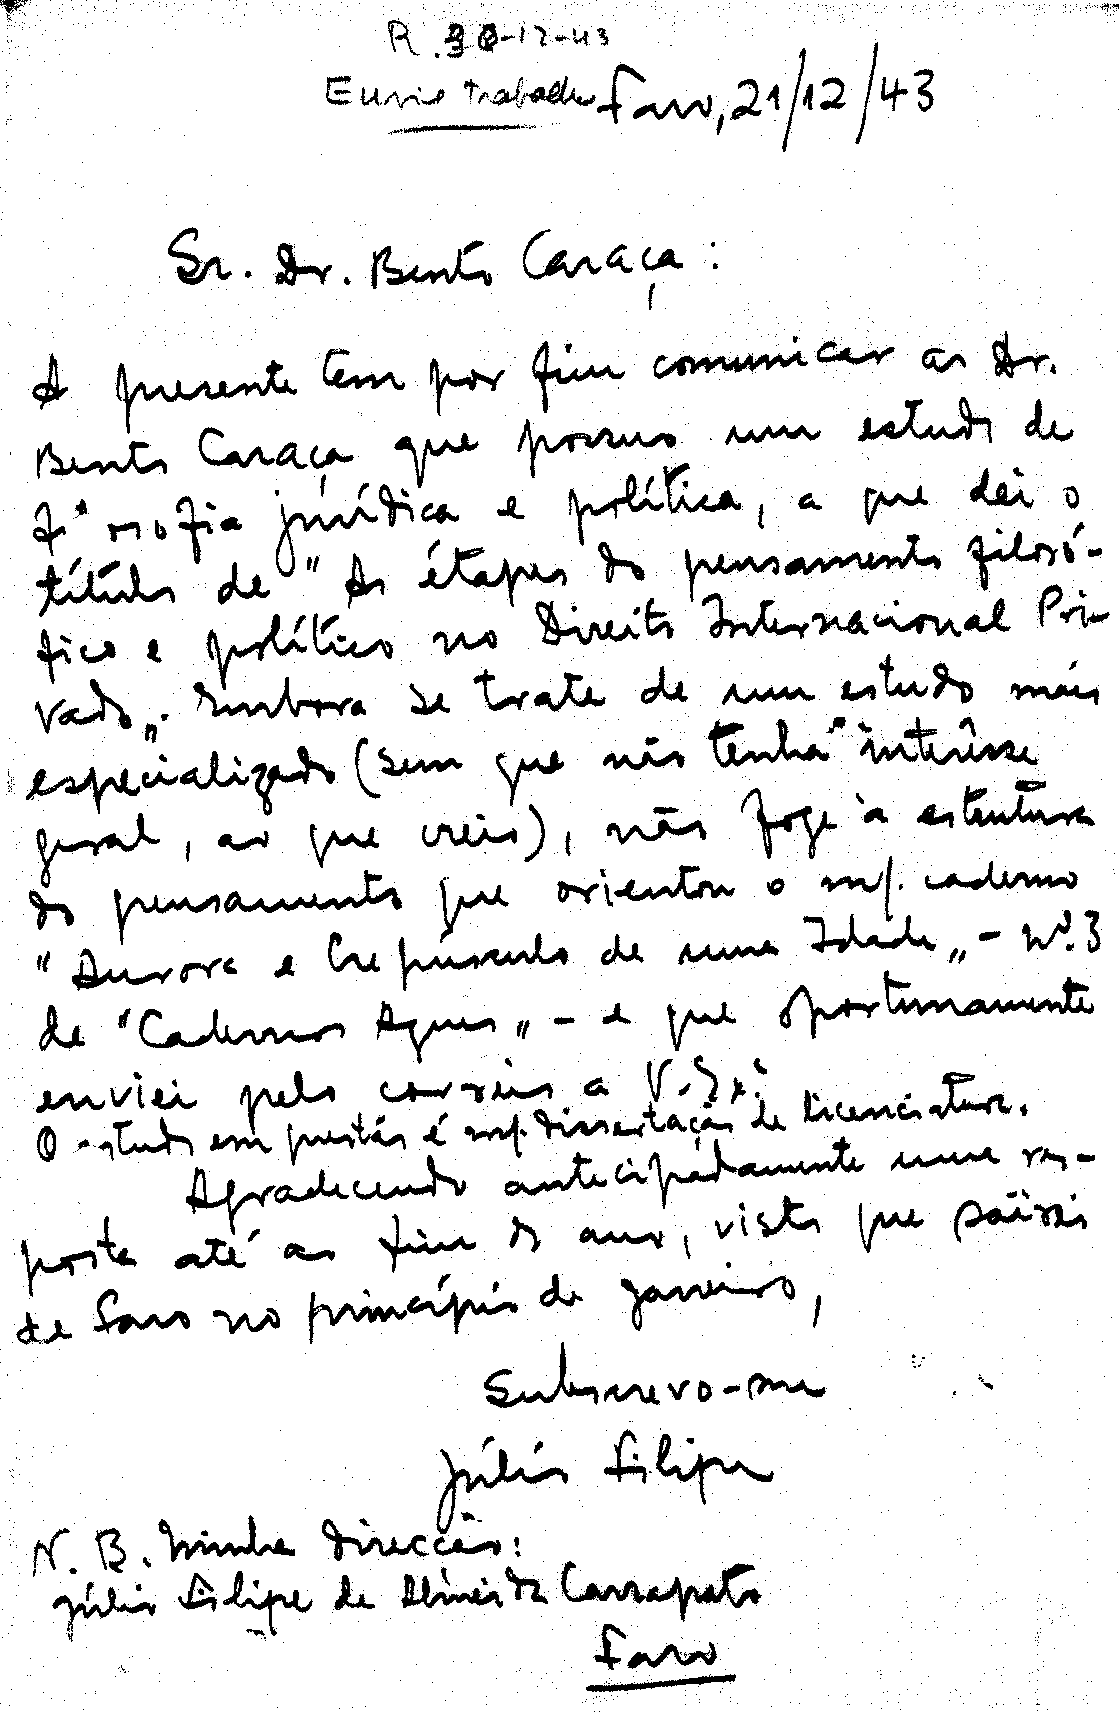 R. 30-12-43
Envie trabalho Faro, 21/12/43
Sr. Dr. Bento Caraça:
A presente tem por fim comunicar ao Dr.
Bento Caraça que possuo um estudo de
filosofia jurídica e política, a que dei o
título de "As étapes do pensamento filosó-
fico e político no Direito Internacional Pri-
vado„. Embora se trate de um estudo mais
especializado (sem que não tenha interêsse
geral, ao que creio), não foge à estrutura
do pensamento que orientou o m/. caderno
"Aurora e Crepúsculo de uma Idade„ - nº. 3
de "Cadernos Agues„ - e que oportunamente
enviei pelo correio a V. Exª
O estudo em questão é m/. dissertação de licenciatura.
Agradecendo antecipadamente uma res-
posta até ao fim do ano, visto que sairei
de Faro no princípio de janeiro,
Subscrevo-me
Júlio Filipe
N. B. Minha direcção:
Júlio Filipe de Almeida Carrapato
Faro